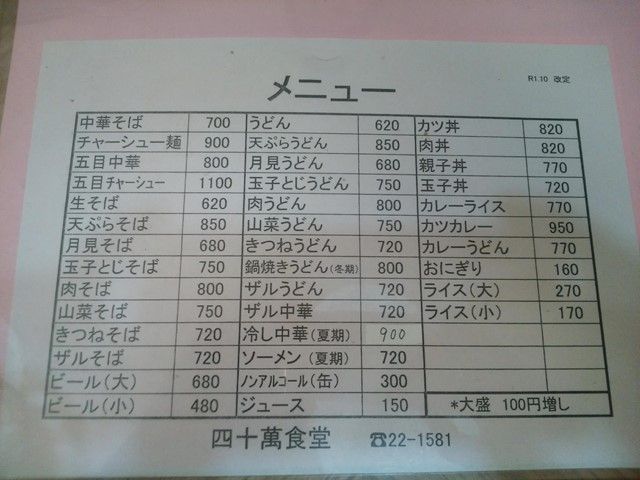 メニュー
R1.10 改定
中華そば 700 うどん 620 カツ丼 820
チャーシュー麺 900 天ぷらうどん 850 肉丼 820
五目中華 800 月見うどん 680 親子丼 770
五目チャーシュー 1100 玉子とじうどん 750 玉子丼 720
生そば 620 肉うどん 800 カレーライス 770
天ぷらそば 850 山菜うどん 750 カツカレー 950
月見そば 680 きつねうどん 720 カレーうどん 770
玉子とじそば 750 鍋焼きうどん(冬期) 800 おにぎり 160
肉そば 800 ザルうどん 720 ライス(大) 270
山菜そば 750 ザル中華 720 ライス(小) 170
きつねそば 720 冷し中華(夏期) 900
ザルそば 720 ソーメン(夏期) 720
ビール(大) 680 ノンアルコール(缶) 300
ビール(小) 480 ジュース 150 *大盛 100円増し
四十萬食堂 ☎22-1581